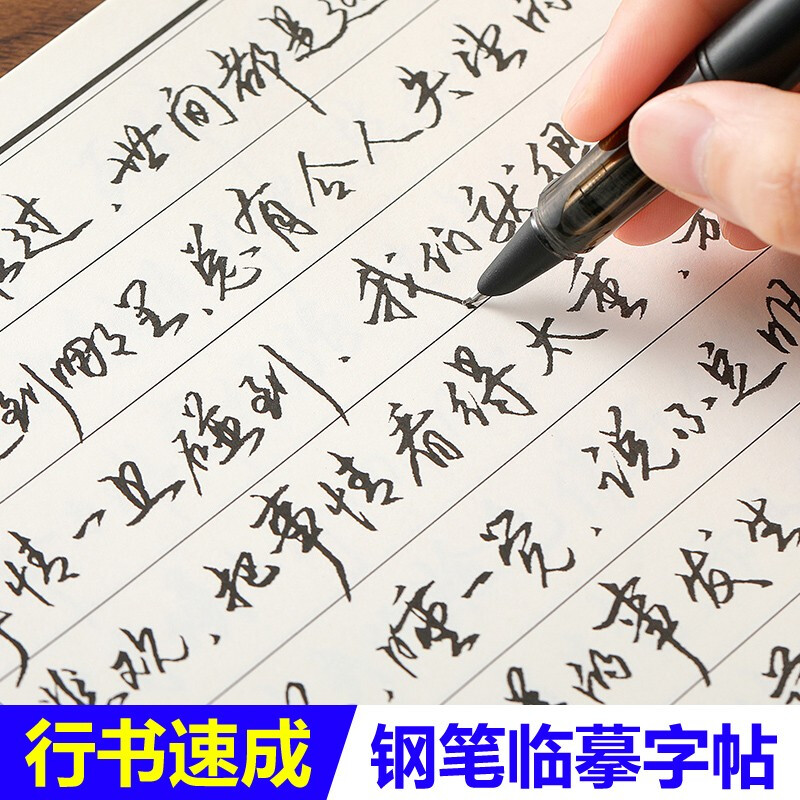 过、世间都是
到哪里、总有令人失望的
情一旦碰到、我们就
欢、把事情看得太重、
睡一觉、说不定明
的事发生
行书速成 钢笔临摹字帖